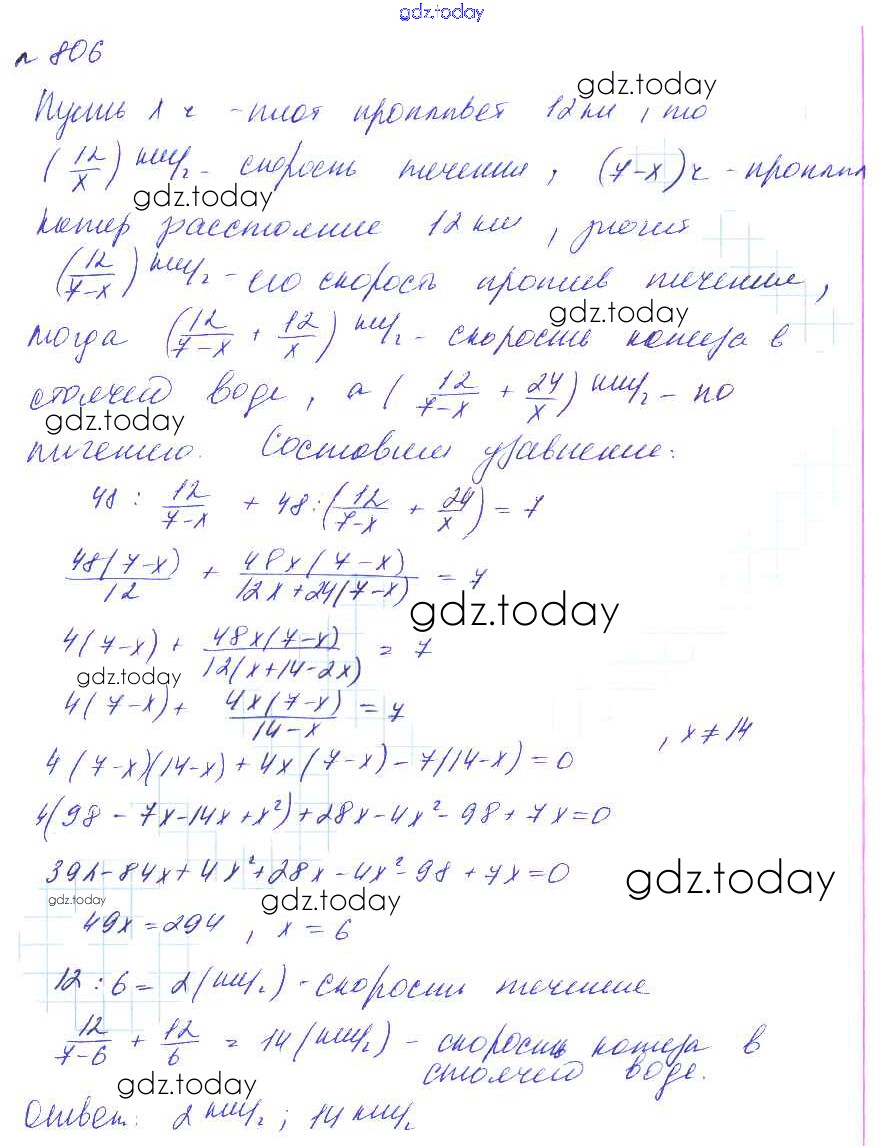 gdz.today
№ 806
Пусть x ч - плот проплывет 12 км, то
gdz.today
(12/x) км/ч - скорость течения, (7-x) ч - проплыл
gdz.today
катер расстояние 12 км, значит
(12/(7-x)) км/ч - его скорость против течения,
gdz.today
тогда (12/(7-x) + 12/x) км/ч - скорость катера в
стоячей воде, а (12/(7-x) + 24/x) км/ч - по
gdz.today
течению. Составим уравнение:
48 : 12/(7-x) + 48 : (12/(7-x) + 24/x) = 7
48(7-x)/12 + 48x(7-x)/(12x+24(7-x)) = 7
gdz.today
4(7-x) + 48x(7-x)/(12(x+14-2x)) = 7
gdz.today
4(7-x) + 4x(7-x)/(14-x) = 7
, x ≠ 14
4(7-x)(14-x) + 4x(7-x) - 7(14-x) = 0
4(98 - 7x - 14x + x²) + 28x - 4x² - 98 + 7x = 0
392 - 84x + 4x² + 28x - 4x² - 98 + 7x = 0
gdz.today
gdz.today gdz.today
49x = 294, x = 6
12 : 6 = 2 (км/ч) - скорость течения
12/(7-6) + 12/6 = 14 (км/ч) - скорость катера в
стоячей воде.
gdz.today
Ответ: 2 км/ч; 14 км/ч